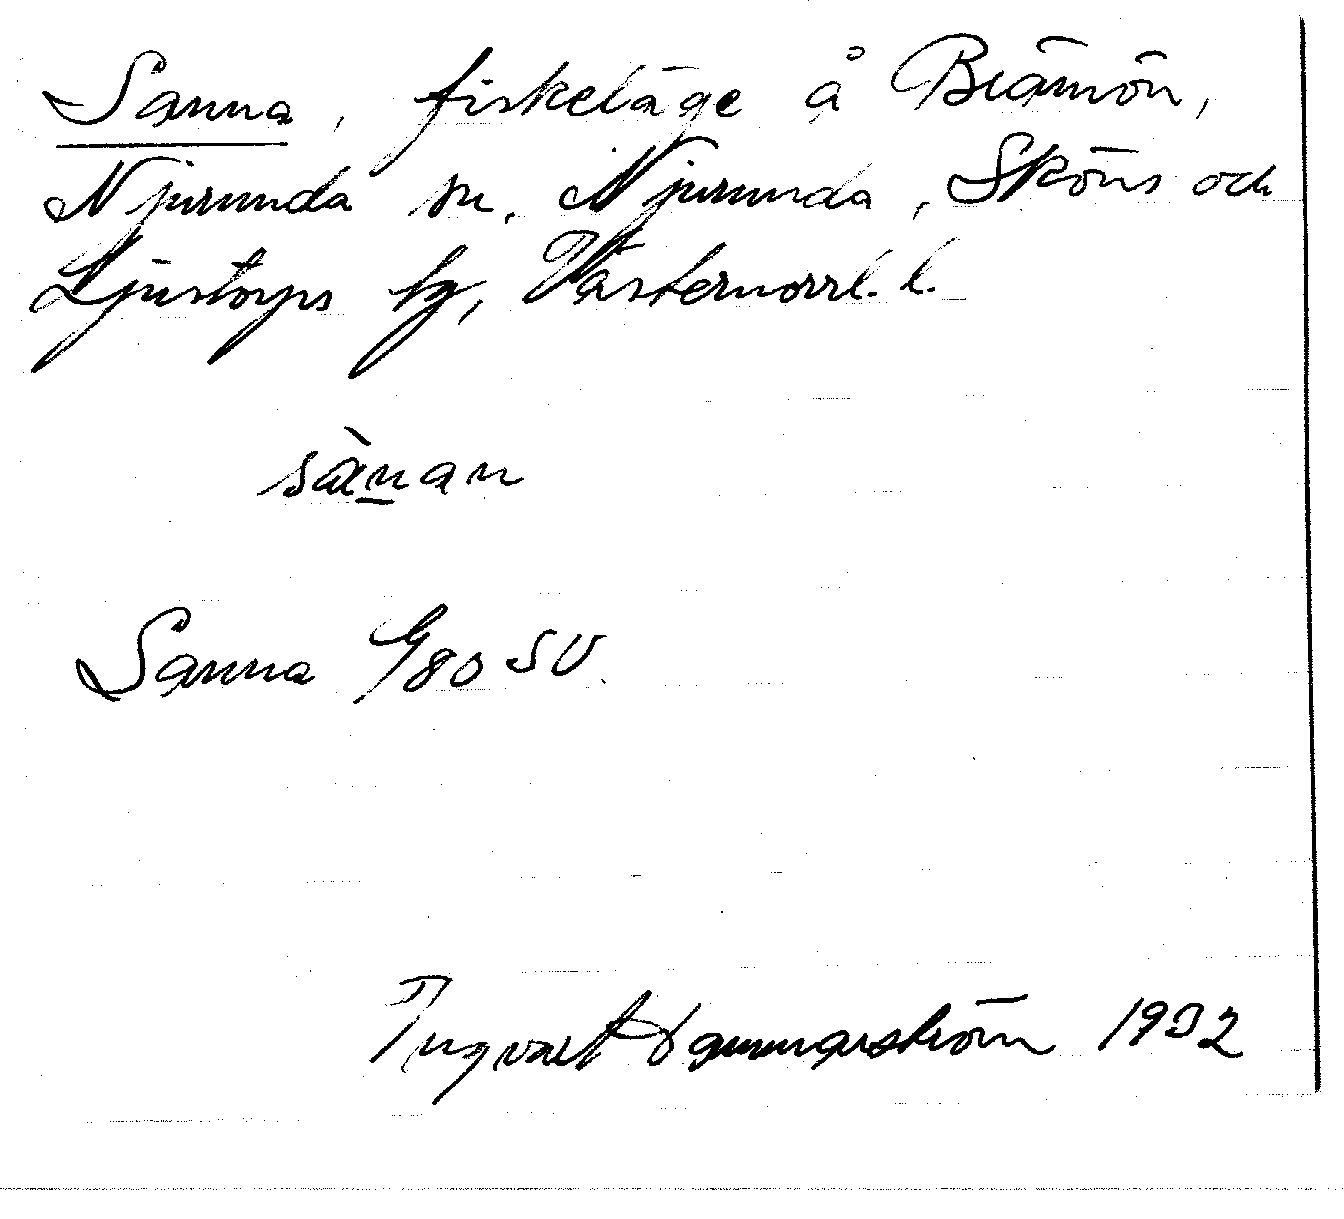 Sanna, fiskeläge å Brämön,
Njurunda sn, Njurunda, Sköns och
Ljustorps tg, Västernorrl. l.
sànan
Sanna G80 SV
Ingvart Hammarström 1932